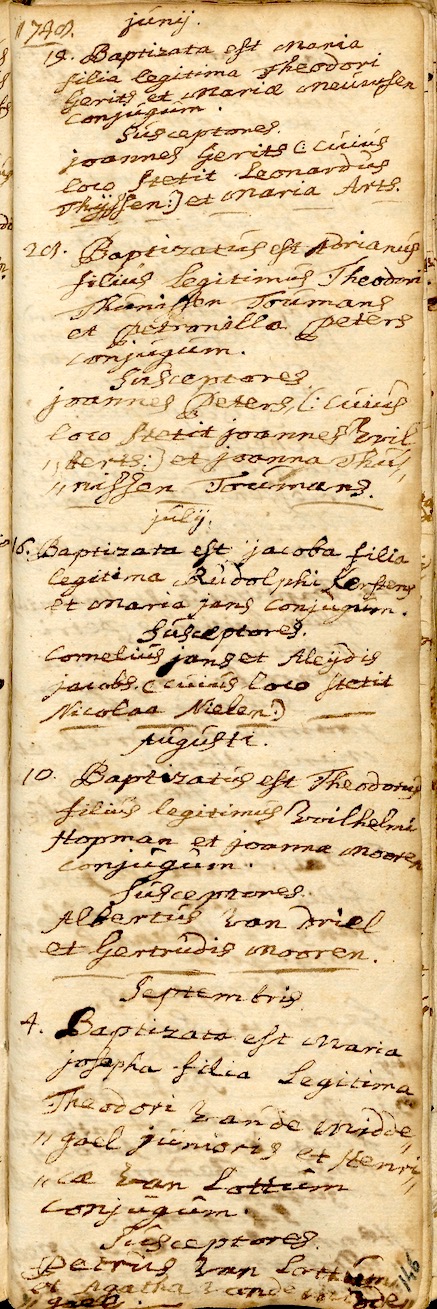 1748. junij.
19. Baptizata est Maria
filia legitima Theodori
Gerits et Mariæ Meuwsen
conjugum.
Susceptores.
joannes Gerits (: cuius
loco stetit Leonardus
Thijssen:) et Maria Arts.
Baptizatus est Adrianus
filius legitimus Theodori
Thunissen Troumans
et Petronilla Peters
conjugum.
Susceptores
joannes Peters, (: cuius
loco stetit joannes Wil
„berts:) et joanna Thu„
„nissen Troumans.
julij.
16. Baptizata est jacoba filia
legitima Rudolphi
et Maria jans conjugum.
Susceptores.
Cornelius jans et Aleydis
jacobs. (: cuius loco stetit
Nicolaa Nielen:)
Augusti.
10. Baptizatus est Theodorus
filius legitimus Wilhelmi
Hopman et joanna Mooren
conjugum.
Susceptores.
Albertus van Driel
et Gertrudis Mooren.
Septembris
4. Baptizata est Maria
josepha filia Legitima
Theodori van de Widde„
„gael junioris et Henri„
„cæ van Lottum
conjugum.
Susceptores.
Petrus van Lottum
et Agatha van de Widde„
gael.
146